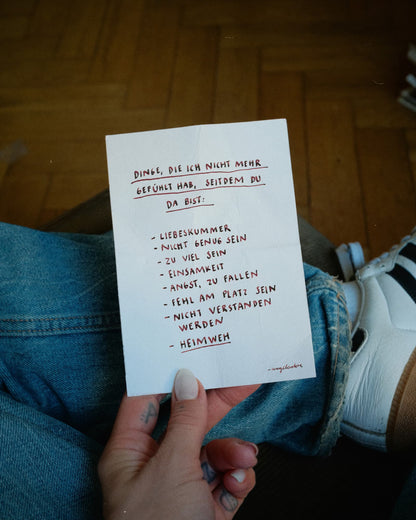 DINGE, DIE ICH NICHT MEHR
GEFÜHLT HAB, SEITDEM DU
DA BIST:
- LIEBESKUMMER
- NICHT GENUG SEIN
- ZU VIEL SEIN
- EINSAMKEIT
- ANGST, ZU FALLEN
- FEHL AM PLATZ SEIN
- NICHT VERSTANDEN
WERDEN
- HEIMWEH